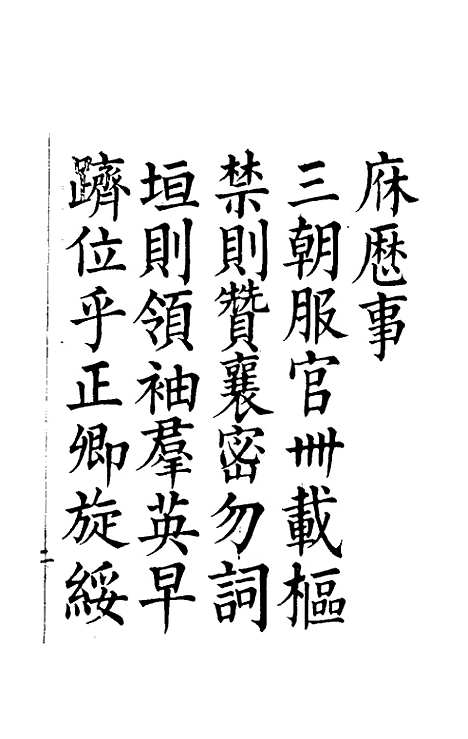 庥歷事
三朝服官卌載樞
禁則贊襄密勿詞
垣則領袖羣英早
躋位乎正卿旋綏
二